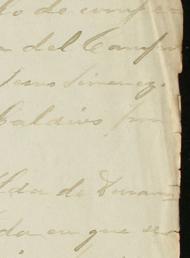 to de comp
a del Camp
Jesus Jimenez
Valdivo, por
lda de Duran
da en que se